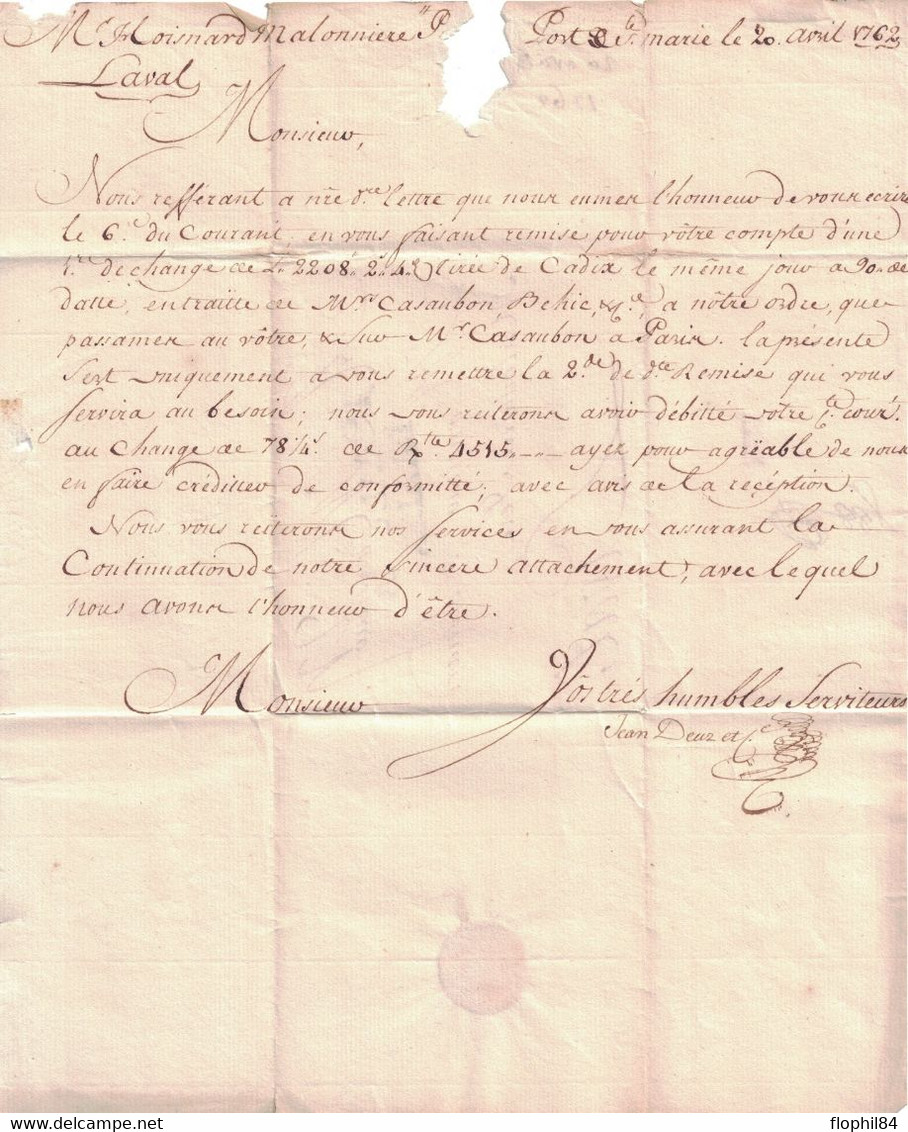 Mr. Hoisnard Malonniere P
Port Ste. marie le 20. avril 1762
Laval
Monsieur,
Nous refférant a nre dre. lettre que nous eumes l'honneur de vous ecrire
le 6e. du Courant, en vous faisant remise pour vôtre compte d'une
1re. de change de L. 2208. 2. 4. tirée de Cadix le même jour a 90. de
datte, en traitte de Mrs. Casaubon, Behic, & Ce., a nôtre ordre, que
passames au vôtre, & Sur Mr. Casaubon a Paris. la présente
Sert uniquement a vous remettre la 2de. de dte. Remise qui vous
Servira au besoin; nous vous reiterons avoir débitté votre Cte. cour.t
au Change de 78 1/4. de Rte. 4515. ayez pour agrëable de nous
en faire crediteur de conformitté; avec avis de la recéption.
Nous vous reiterons nos Services en vous assurant la
Continuation de notre sincere attachement, avec lequel
nous avons l'honneur d'être.
Monsieur
Vos trés humbles Serviteurs
Jean Deuz et Ce.
flophil84